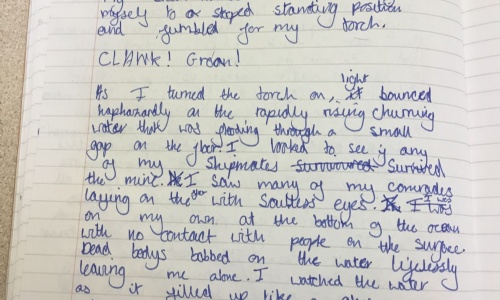 myself to a stoped standing position
and fumbled for my torch.
CLAWK! Groan!
As I turned the torch on, light bounced
haphazardly on the rapidly rising churning
water that was flooding through a small
gap on the floor. I looked to see if any
of my shipmates survived
the mine. I saw many of my comrades
laying on the floor with soulless eyes. I was
on my own at the bottom of the ocean
with no contact with people on the surface.
Dead bodys bobbed on the water lifelessly
leaving me alone. I watched the water
as it filled up like a